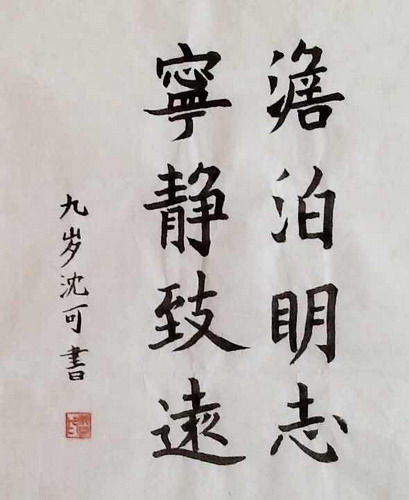 澹泊明志
寧静致遠
九岁沈可書